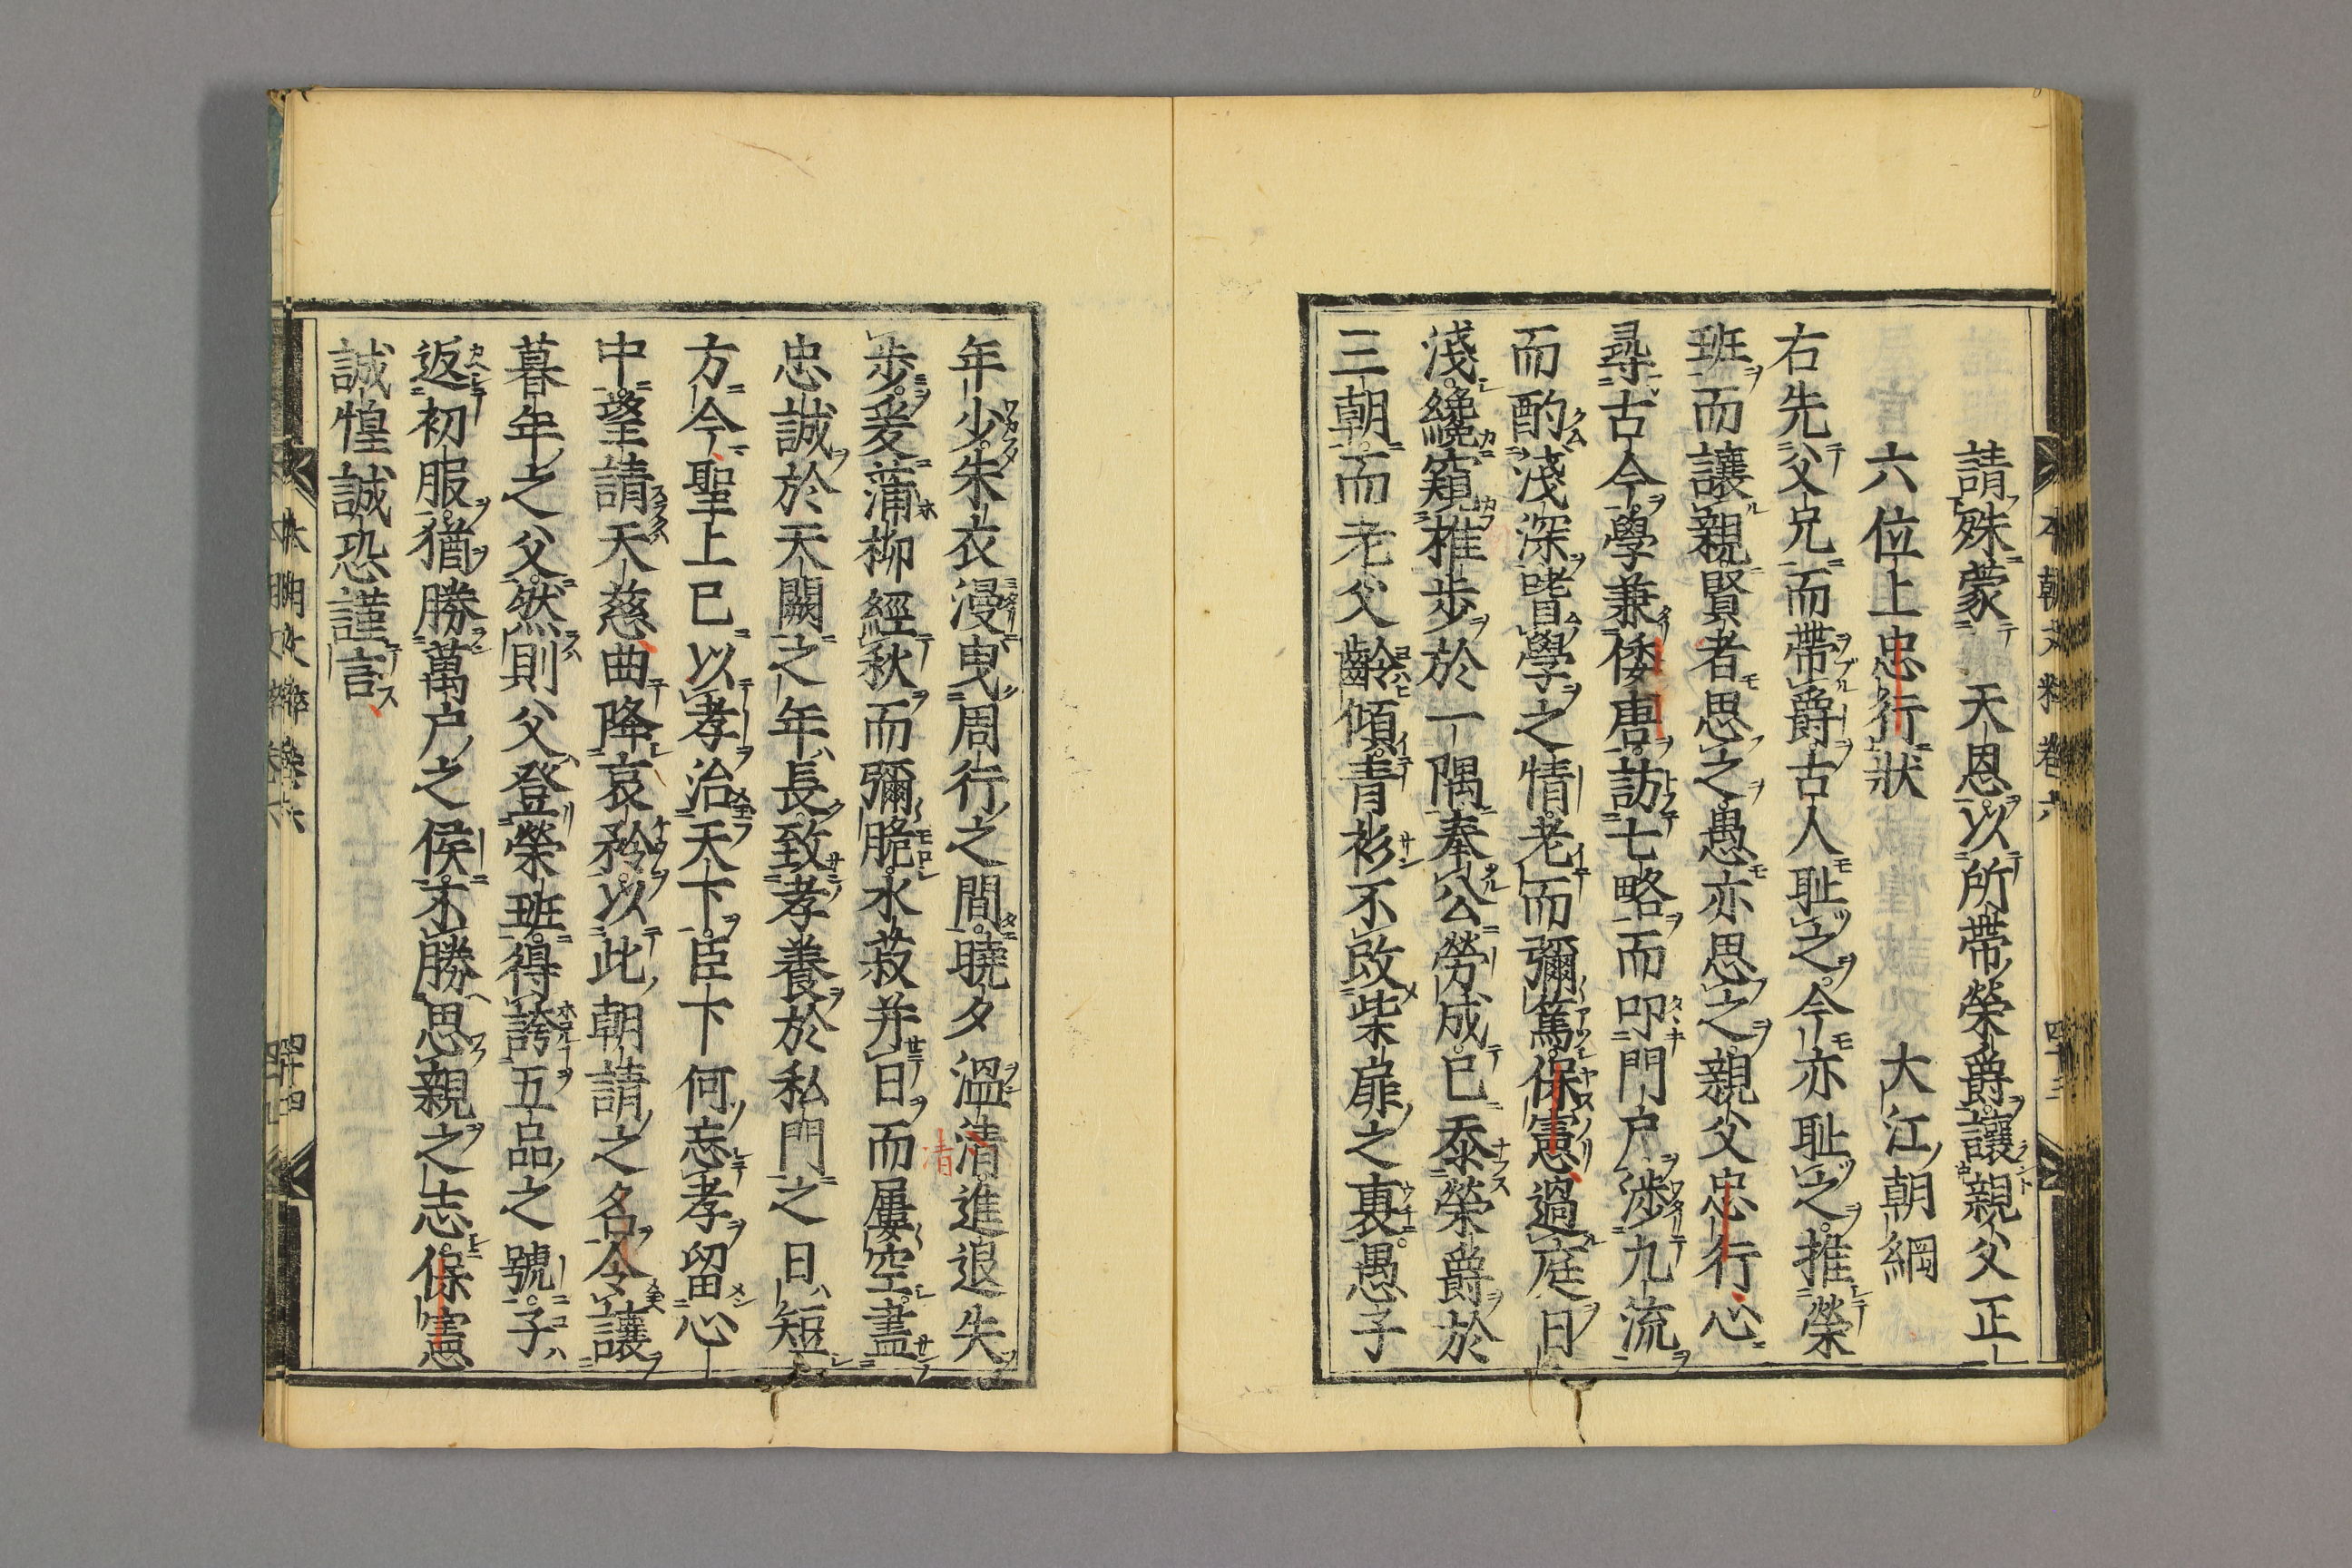 請殊蒙 天恩以所帶榮爵讓親父正
六位上忠行狀 大江朝綱
右先父兄而帶爵古人耻之今亦耻之推榮
班而讓親賢者思之愚亦思之親父忠行心
尋古今學兼倭唐訪七略而叩門戸涉九流
而酌淺深皆學之情老而彌篤保憲過庭日
淺纔窺推歩於一隅奉公勞成已忝榮爵於
三朝而老父齡傾青衫不改柴扉之裏愚子
年少朱衣浸曳周行之間曉夕溫清進退失
歩爰蒲柳經秋而彌脆水菽并日而屢空盡
忠誠於天闕之年長致孝養於私門之日短
方今聖上已以孝治天下臣下何忘孝留心
中望請天慈曲降哀矜以此朝請之名令讓
暮年之父然則父登榮班得誇五品之號子
返初服猶勝萬户之侯不勝思親之志保憲
誠惶誠恐謹言
本朝文粹卷六 四十三
本朝文粹卷六 四十四
清